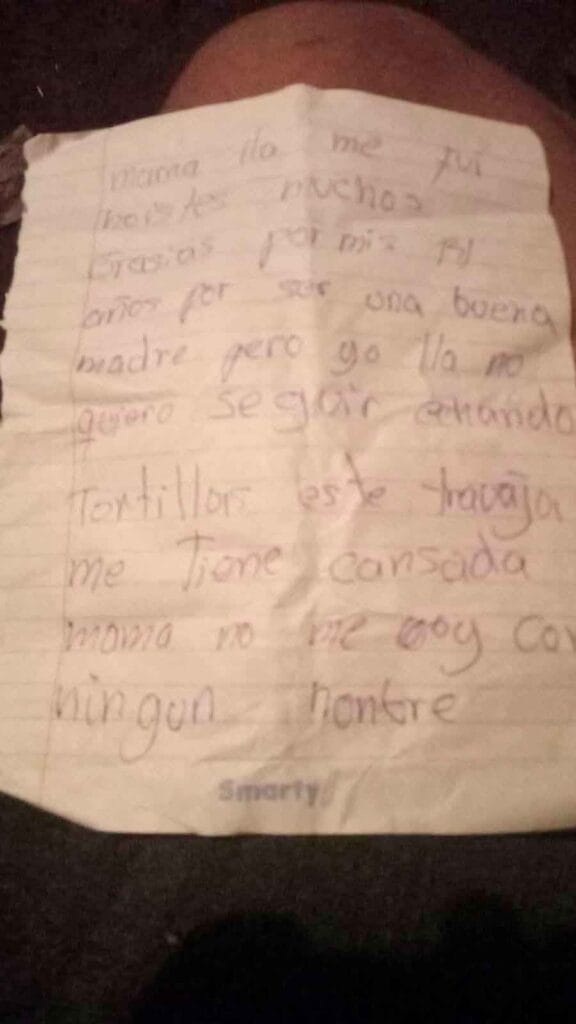 mama lla me fui
muchas
Grasias por mis
años por ser una buena
madre pero yo lla no
quiero seguir echando
Tortillas este travaja
me Tiene cansada
mama no me boy con
ningun honbre
Smarty